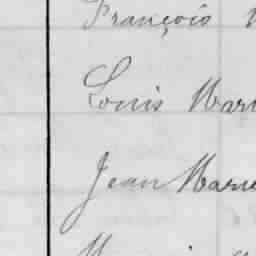 François
Louis Mari
Jean Marie